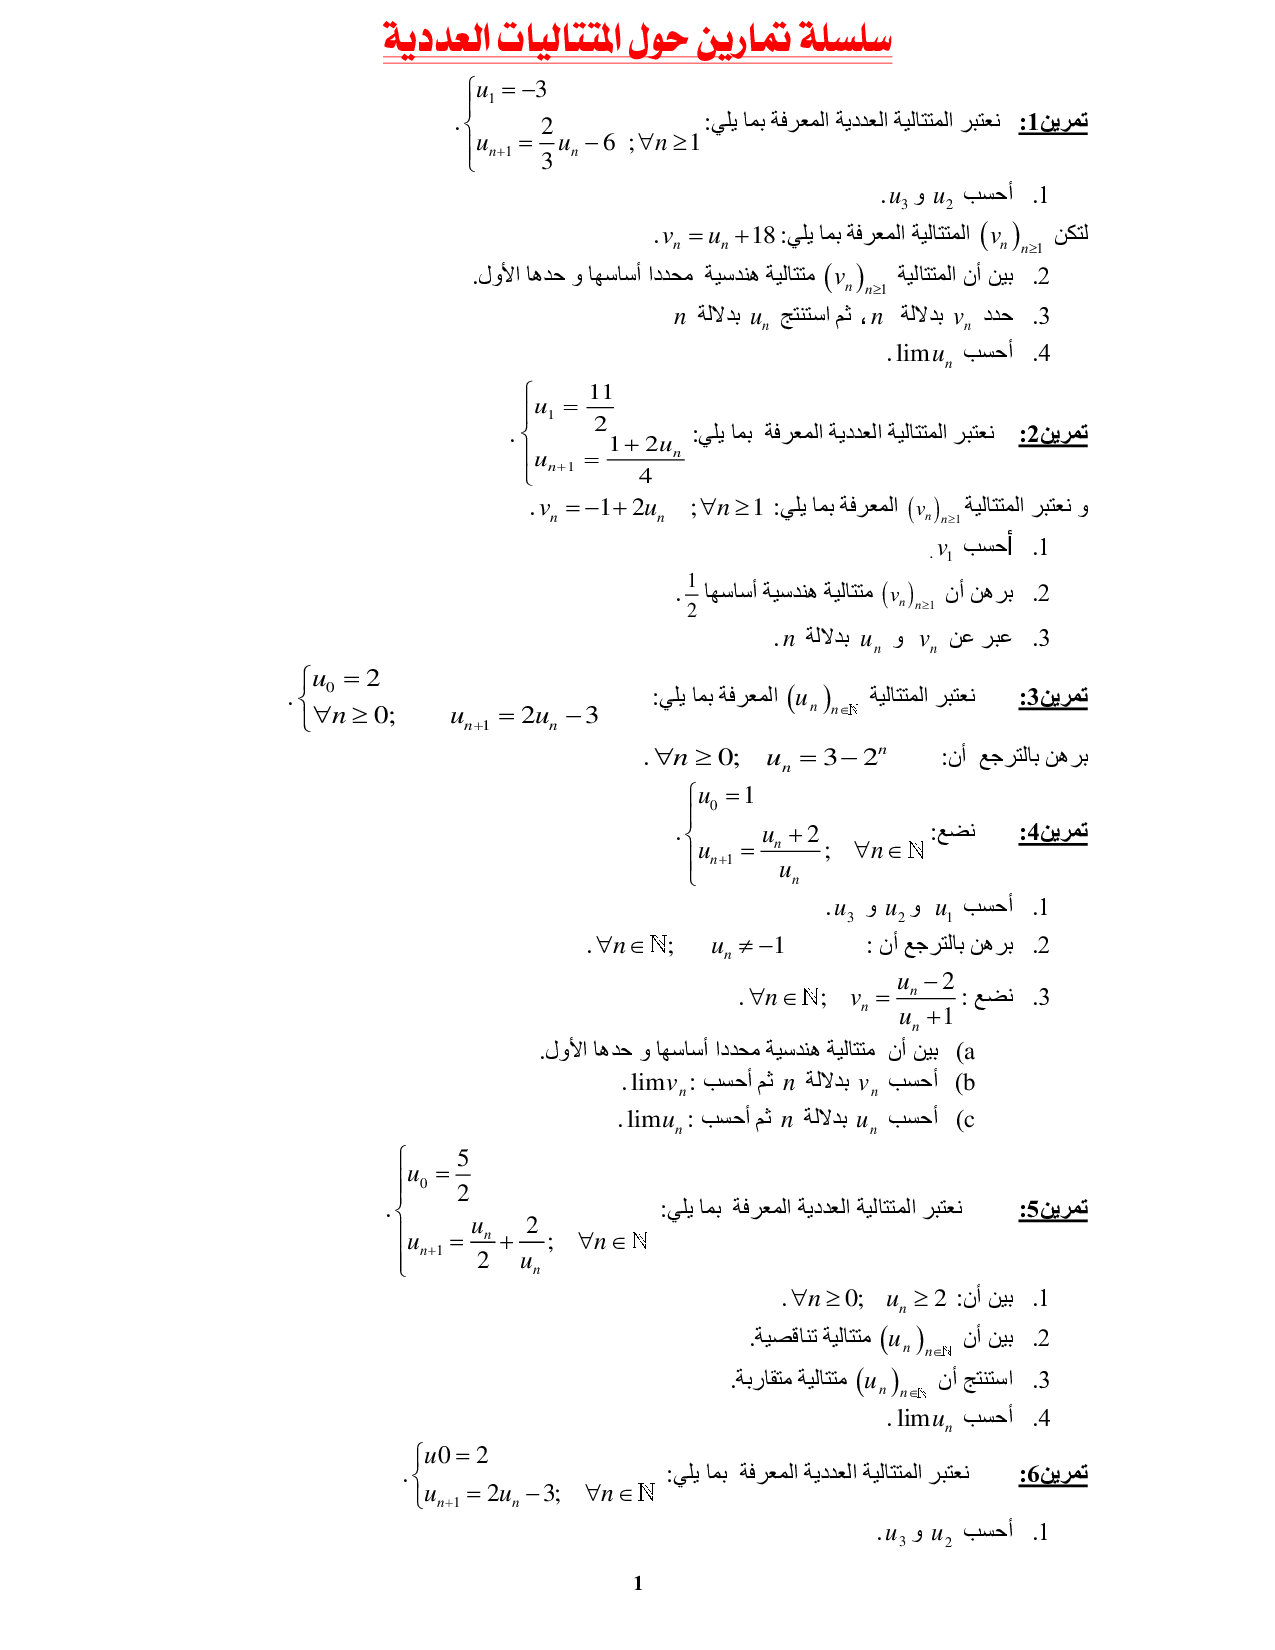 سلسلة تمارين حول المتتاليات العددية
تمرين1: نعتبر المتتالية العددية المعرفة بما يلي: { u₁ = −3 ; uₙ₊₁ = 2/3 uₙ − 6 ; ∀n ≥ 1 .
1. أحسب u₂ و u₃.
لتكن (vₙ)ₙ≥₁ المتتالية المعرفة بما يلي: vₙ = uₙ + 18.
2. بين أن المتتالية (vₙ)ₙ≥₁ متتالية هندسية محددا أساسها و حدها الأول.
3. حدد vₙ بدلالة n ، ثم استنتج uₙ بدلالة n
4. أحسب lim uₙ .
تمرين2: نعتبر المتتالية العددية المعرفة بما يلي: { u₁ = 11/2 ; uₙ₊₁ = (1 + 2uₙ)/4 .
و نعتبر المتتالية (vₙ)ₙ≥₁ المعرفة بما يلي: vₙ = −1 + 2uₙ ; ∀n ≥ 1 .
1. أحسب v₁ .
2. برهن أن (vₙ)ₙ≥₁ متتالية هندسية أساسها 1/2 .
3. عبر عن vₙ و uₙ بدلالة n .
تمرين3: نعتبر المتتالية (uₙ)ₙ∈ℕ المعرفة بما يلي: { u₀ = 2 ; ∀n ≥ 0; uₙ₊₁ = 2uₙ − 3 .
برهن بالترجع أن: ∀n ≥ 0; uₙ = 3 − 2ⁿ .
تمرين4: نضع: { u₀ = 1 ; uₙ₊₁ = (uₙ + 2)/uₙ ; ∀n ∈ ℕ .
1. أحسب u₁ و u₂ و u₃.
2. برهن بالترجع أن : ∀n ∈ ℕ; uₙ ≠ −1 .
3. نضع : ∀n ∈ ℕ; vₙ = (uₙ − 2)/(uₙ + 1) .
a) بين أن متتالية هندسية محددا أساسها و حدها الأول.
b) أحسب vₙ بدلالة n ثم أحسب : lim vₙ .
c) أحسب uₙ بدلالة n ثم أحسب : lim uₙ .
تمرين5: نعتبر المتتالية العددية المعرفة بما يلي: { u₀ = 5/2 ; uₙ₊₁ = uₙ/2 + 2/uₙ ; ∀n ∈ ℕ .
1. بين أن: ∀n ≥ 0; uₙ ≥ 2 .
2. بين أن (uₙ)ₙ∈ℕ متتالية تناقصية.
3. استنتج أن (uₙ)ₙ∈ℕ متتالية متقاربة.
4. أحسب lim uₙ .
تمرين6: نعتبر المتتالية العددية المعرفة بما يلي: { u0 = 2 ; uₙ₊₁ = 2uₙ − 3; ∀n ∈ ℕ .
1. أحسب u₂ و u₃.
1